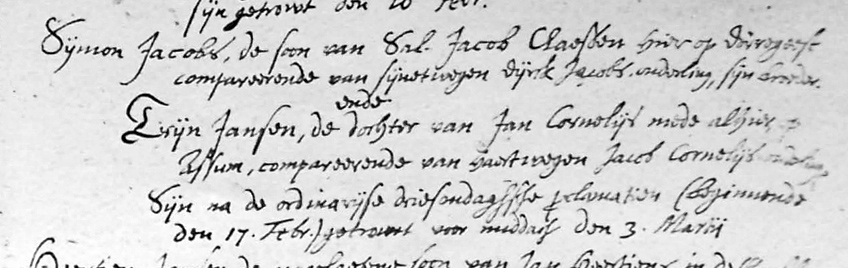 sijn getrowt den 10 Febr.
Sijmon Jacobs, de soon van Sal. Jacob Claessen hier op dorregeest
compareerende van sijnetwegen Dijrck Jacobs. ouderling, sijn broeder.
ende
Trijn Jansen, de dochter van Jan Cornelijs mede alhier op
Assum, compareerende van haertwegen Jacob Cornelijs
Sijn na de ordinarijse driesondaghsse proclamatien (beginnende
den 17. Febr.) getrowt voor middach den 3. Martij
de soon van Jan